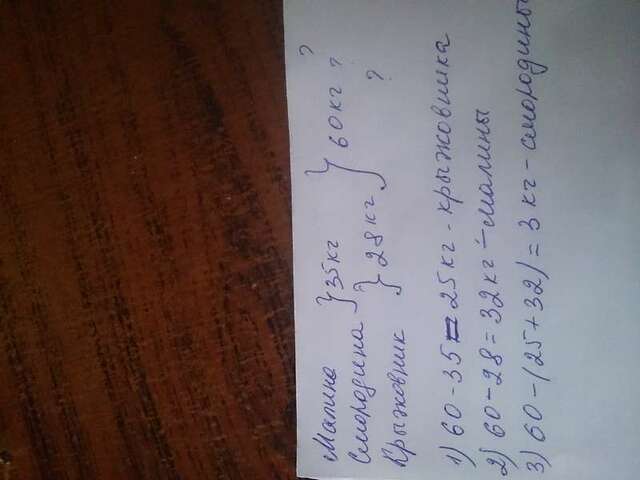 Малина } 35кг } 60кг ?
Смородина } 28кг ?
Крыжовник ?
1) 60-35=25кг-крыжовника
2) 60-28=32кг-малины
3) 60-(25+32)=3кг-смородины